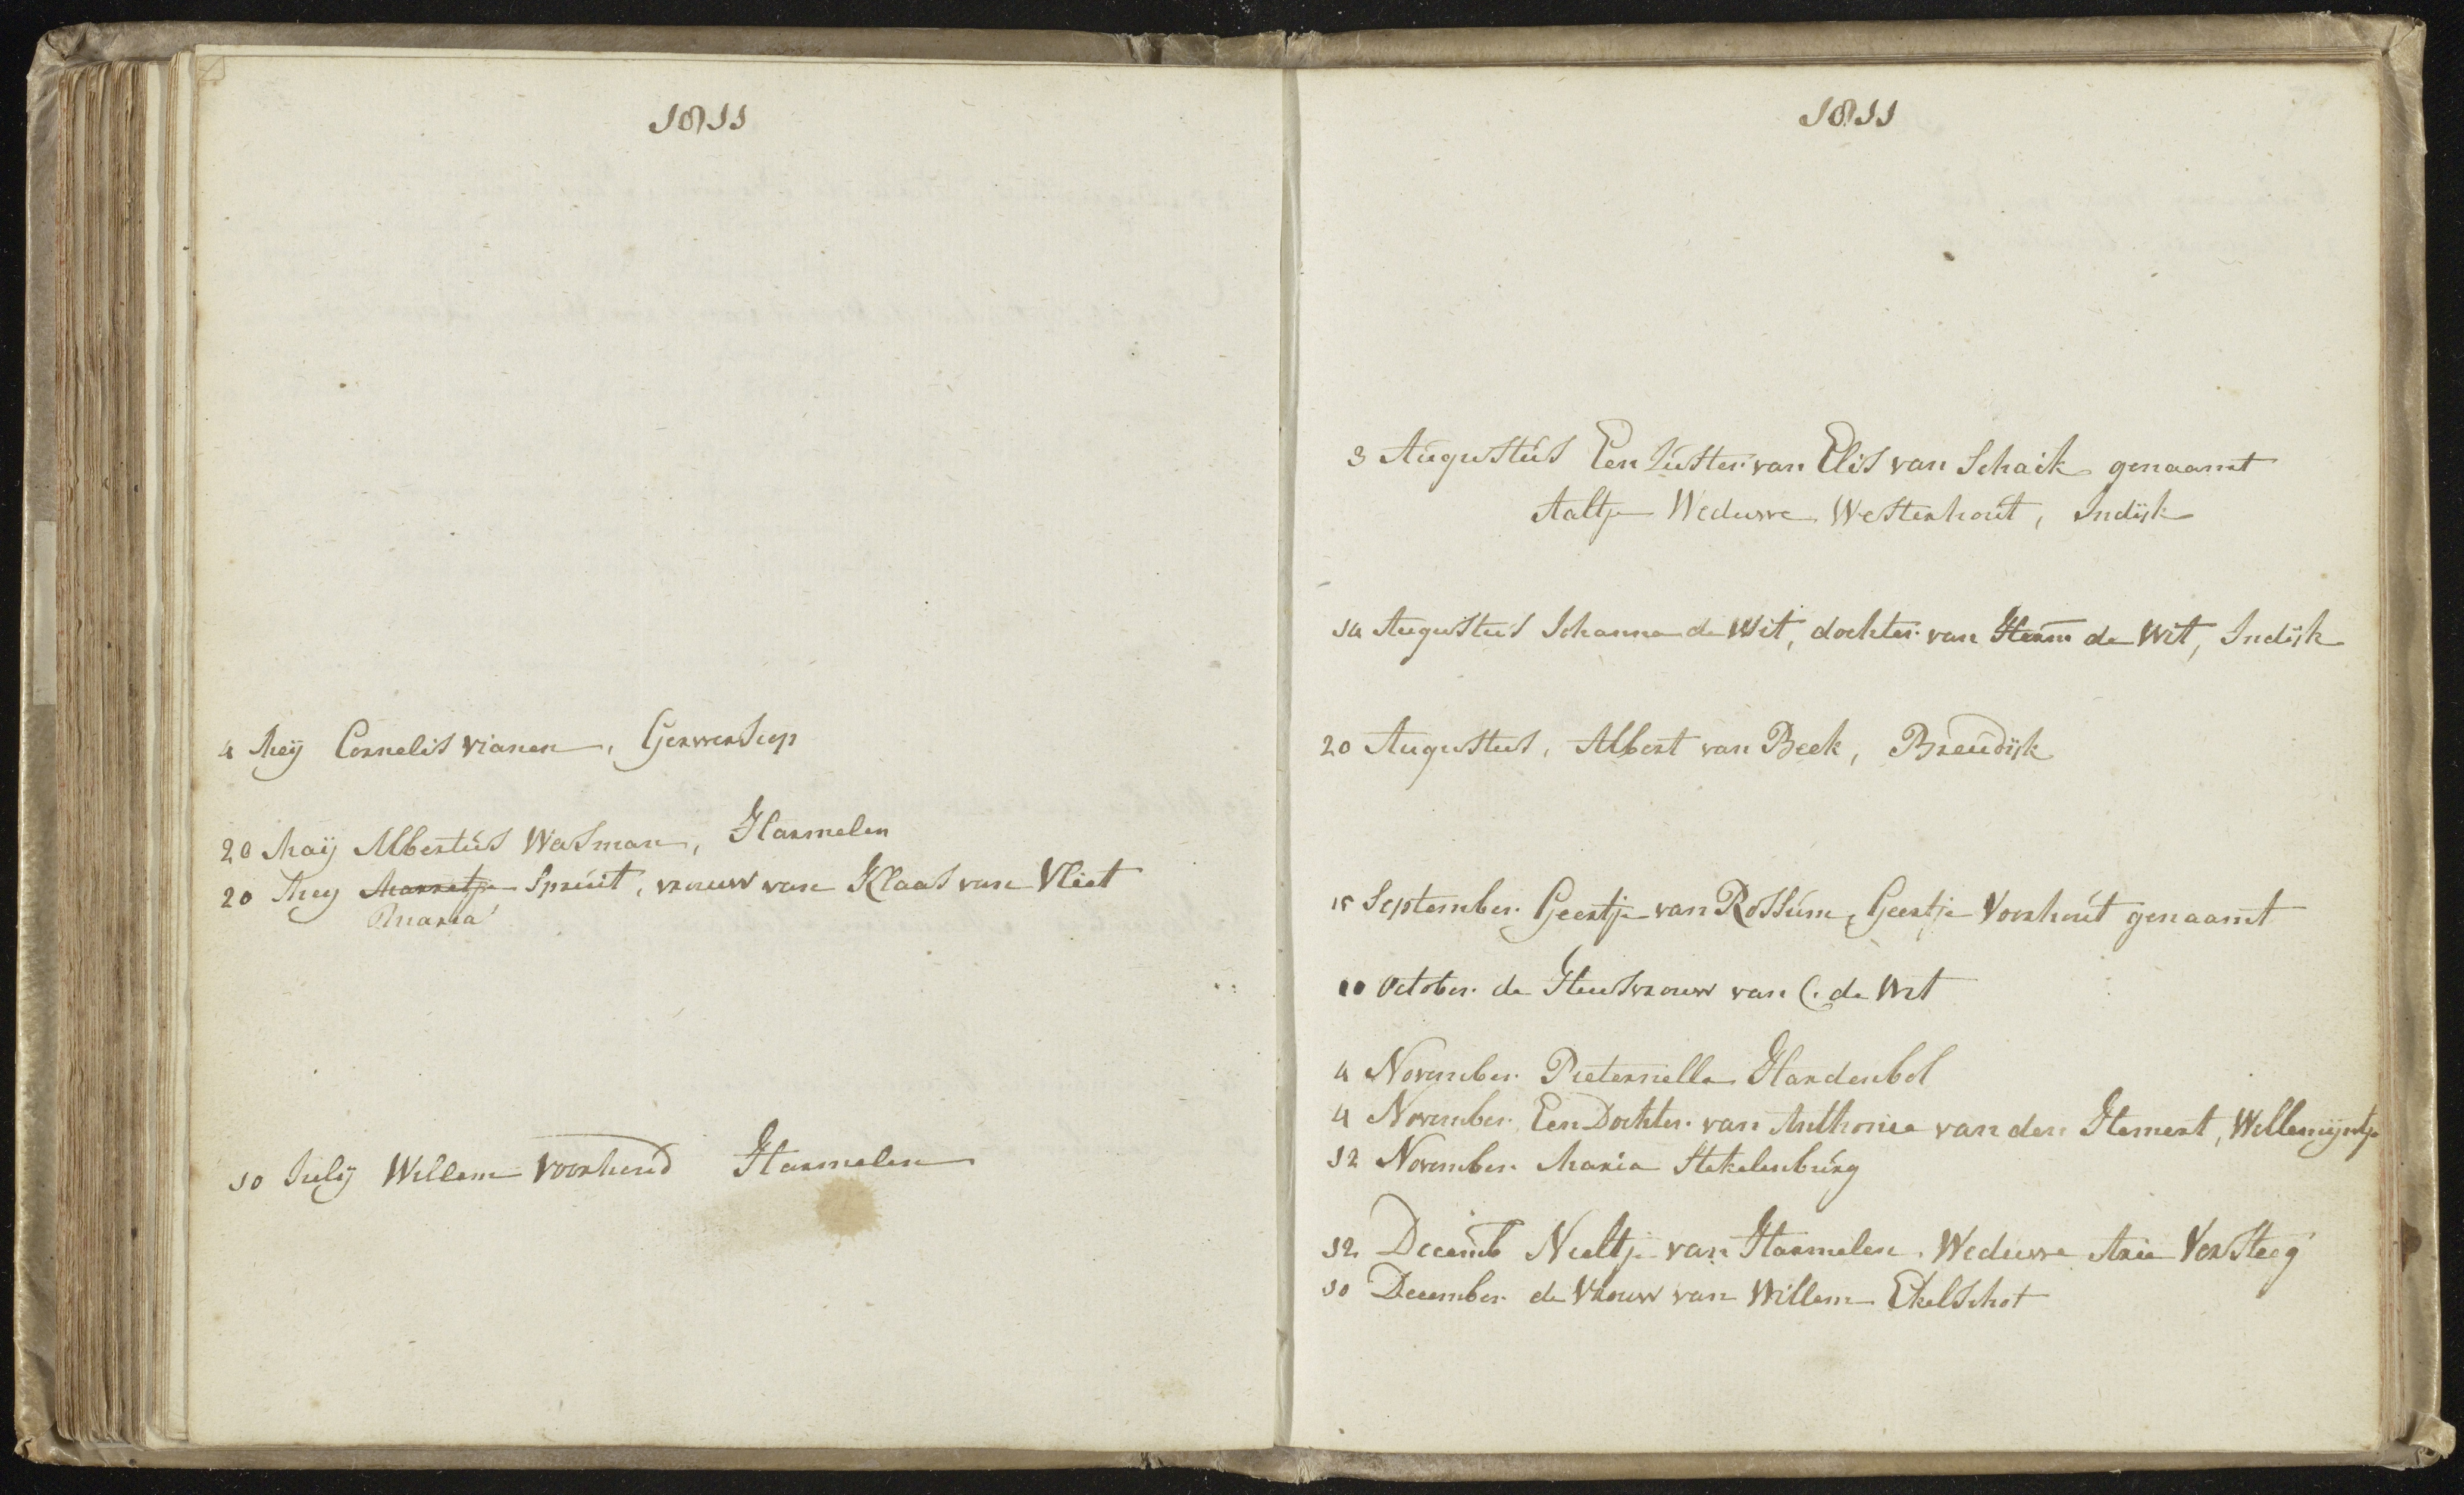 1811
4 Meij Cornelis Vianen, Gerwerscop
20 Maij Albertus Wasman, Harmelen
20 Meij Marretje Spruit, vrouw van Klaas van Vliet
Maria
10 Julij Willem Voorhend Harmelen
1811
3 Augustus Een Suster van Elis van Schaik genaamt
Aaltje Weduwe Westerhout, Indijk
14 Augustus Johanna de Wit, dochter van Herm de Wit, Indijk
20 Augustus, Albert van Beek, Breudijk
15 September Geertje van Rossum, Geertje Voorhout genaamt
10 October de Huusvrouw van C. de Wit
4 November Pieternella Hardenbol
4 November Een Dochter van Anthonie van den Hemert, Willemijntje
12 November Maria Stekelenburg
12 Decemb Neeltje van Harmelen, Weduwe Arie Versteeg
30 December de Vrouw van Willem Ekelschot